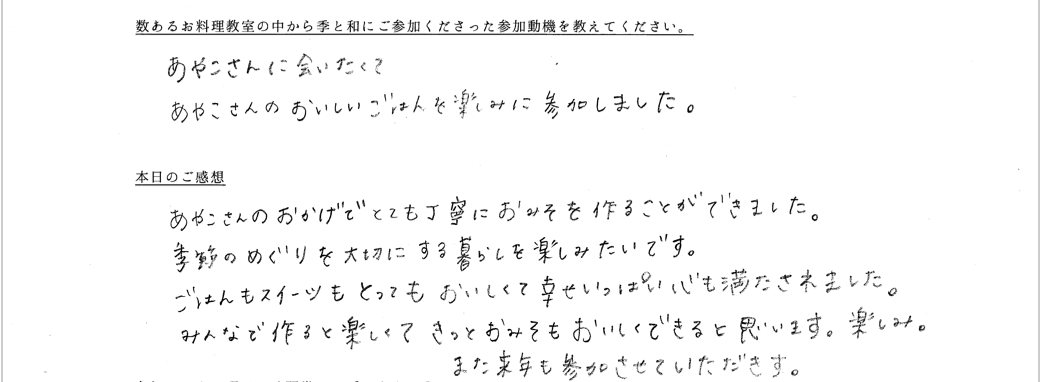 数あるお料理教室の中から季と和にご参加くださった参加動機を教えてください。
あやこさんに会いたくて
あやこさんのおいしいごはんを楽しみに参加しました。
本日のご感想
あやこさんのおかげでとても丁寧におみそを作ることができました。
季節のめぐりを大切にする暮らしを楽しみたいです。
ごはんもスイーツもとってもおいしくて幸せいっぱい心も満たされました。
みんなで作ると楽しくてきっとおみそもおいしくできると思います。楽しみ。
また来年も参加させていただきます。